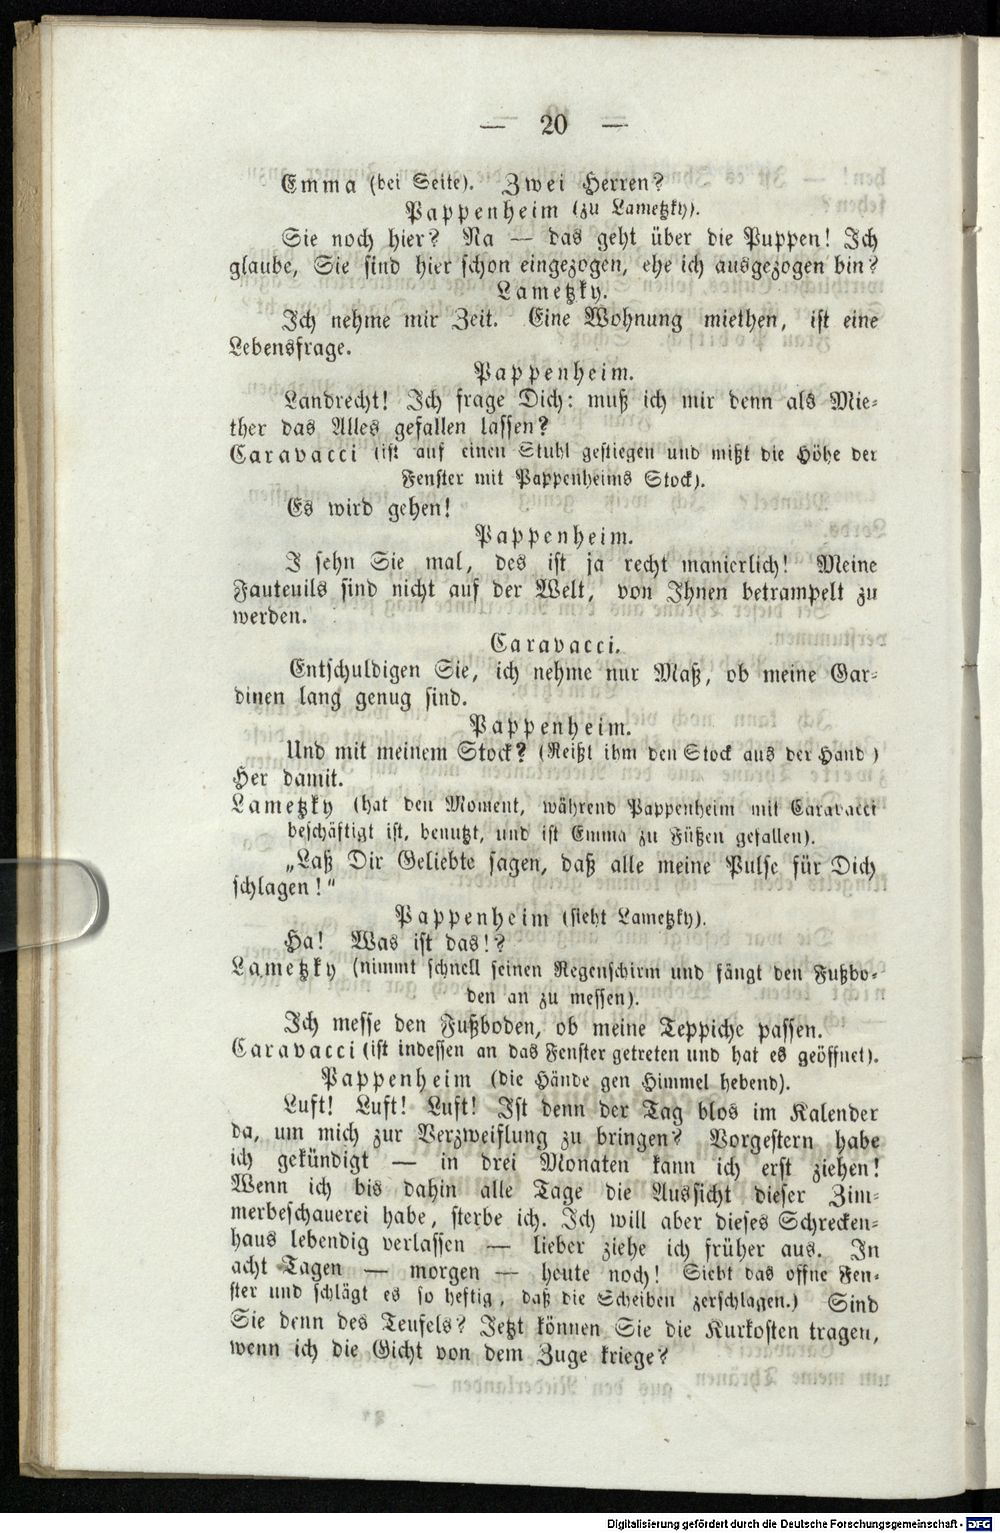 — 20 —
Emma (bei Seite). Zwei Herren?
Pappenheim (zu Lametzky).
Sie noch hier? Na — das geht über die Puppen! Ich
glaube, Sie sind hier schon eingezogen, ehe ich ausgezogen bin?
Lametzky.
Ich nehme mir Zeit. Eine Wohnung miethen, ist eine
Lebensfrage.
Pappenheim.
Landrecht! Ich frage Dich: muß ich mir denn als Mie-
ther das Alles gefallen lassen?
Caravacci (ist auf einen Stuhl gestiegen und mißt die Höhe der
Fenster mit Pappenheims Stock).
Es wird gehen!
Pappenheim.
I sehn Sie mal, des ist ja recht manierlich! Meine
Fauteuils sind nicht auf der Welt, von Ihnen betrampelt zu
werden.
Caravacci.
Entschuldigen Sie, ich nehme nur Maß, ob meine Gar-
dinen lang genug sind.
Pappenheim.
Und mit meinem Stock? (Reißt ihm den Stock aus der Hand )
Her damit.
Lametzky (hat den Moment, während Pappenheim mit Caravacci
beschäftigt ist, benutzt, und ist Emma zu Füßen gefallen).
„Laß Dir Geliebte sagen, daß alle meine Pulse für Dich
schlagen!“
Pappenheim (sieht Lametzky).
Ha! Was ist das!?
Lametzky (nimmt schnell seinen Regenschirm und fängt den Fußbo-
den an zu messen).
Ich messe den Fußboden, ob meine Teppiche passen.
Caravacci (ist indessen an das Fenster getreten und hat es geöffnet).
Pappenheim (die Hände gen Himmel hebend).
Luft! Luft! Luft! Ist denn der Tag blos im Kalender
da, um mich zur Verzweiflung zu bringen? Vorgestern habe
ich gekündigt — in drei Monaten kann ich erst ziehen!
Wenn ich bis dahin alle Tage die Aussicht dieser Zim-
merbeschauerei habe, sterbe ich. Ich will aber dieses Schrecken-
haus lebendig verlassen — lieber ziehe ich früher aus. In
acht Tagen — morgen — heute noch! Sieht das offne Fen-
ster und schlägt es so heftig, daß die Scheiben zerschlagen.) Sind
Sie denn des Teufels? Jetzt können Sie die Kurkosten tragen,
wenn ich die Gicht von dem Zuge kriege?
Digitalisierung gefördert durch die Deutsche Forschungsgemeinschaft - DFG